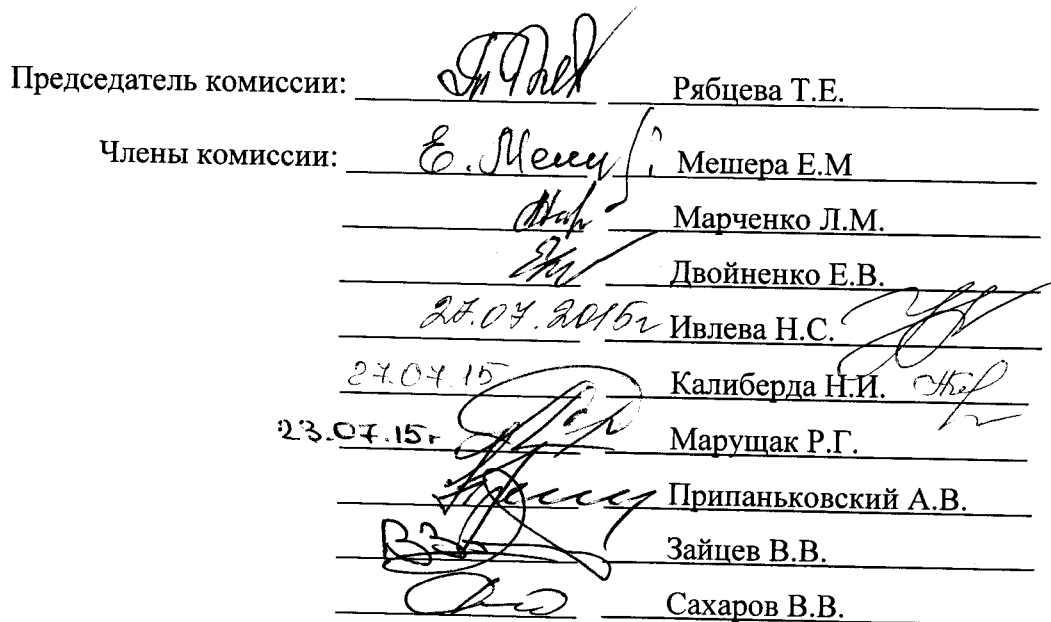 Председатель комиссии: Рябцева Т.Е.
Члены комиссии: Е. Меш Мешера Е.М
Марченко Л.М.
Двойненко Е.В.
27.07.2015г Ивлева Н.С.
27.07.15 Калиберда Н.И.
23.07.15г Марущак Р.Г.
Припаньковский А.В.
Зайцев В.В.
Сахаров В.В.